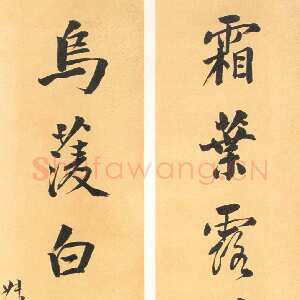 霜葉露
烏菱白
Shufawang.CN